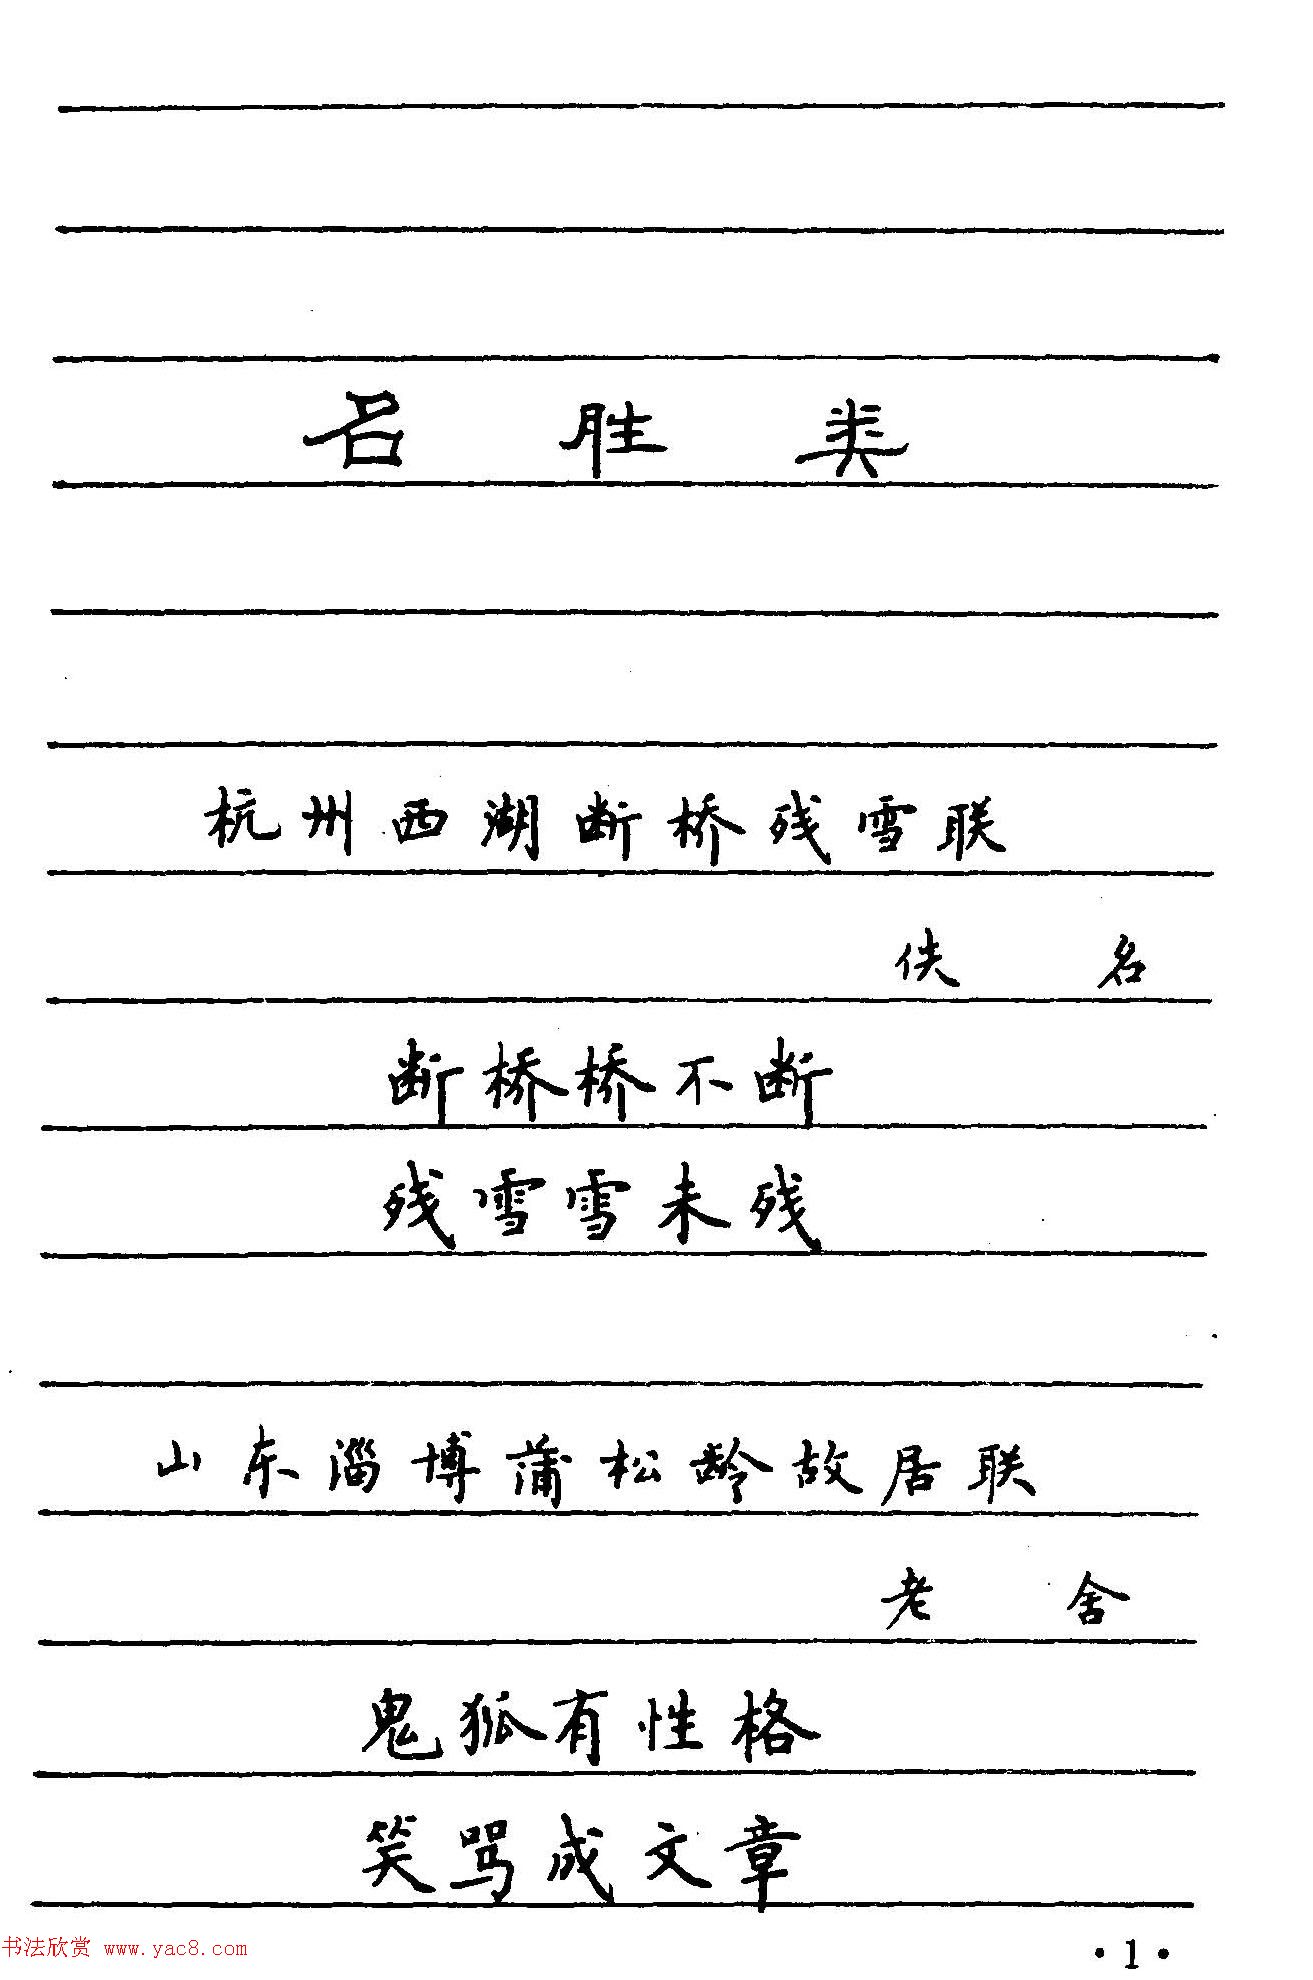 名胜类
杭州西湖断桥残雪联
佚名
断桥桥不断
残雪雪未残
山东淄博蒲松龄故居联
老舍
鬼狐有性格
笑骂成文章
书法欣赏 www.yac8.com
·1·